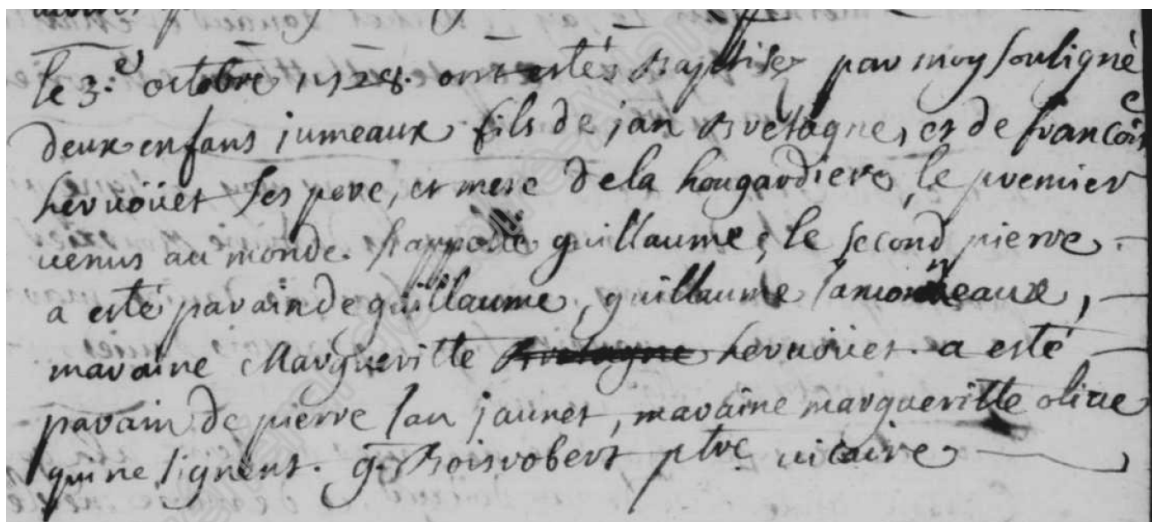 le 3.e octobre 1728. ont estés Baptises par moy souligné
deux enfans jumeaux fils de jan Bretagne, et de francoise
hervoüet ses pere, et mere de la hougardiere, le premier
venus au monde. sappelle guillaume, le second pierre.
a esté parain de guillaume, guillaume
maraine Margueritte Bretagne hervoüet. a esté
parain de pierre jan jaunet, maraine margueritte oliue
qui ne signent. g. Boisrobert ptre vicaire